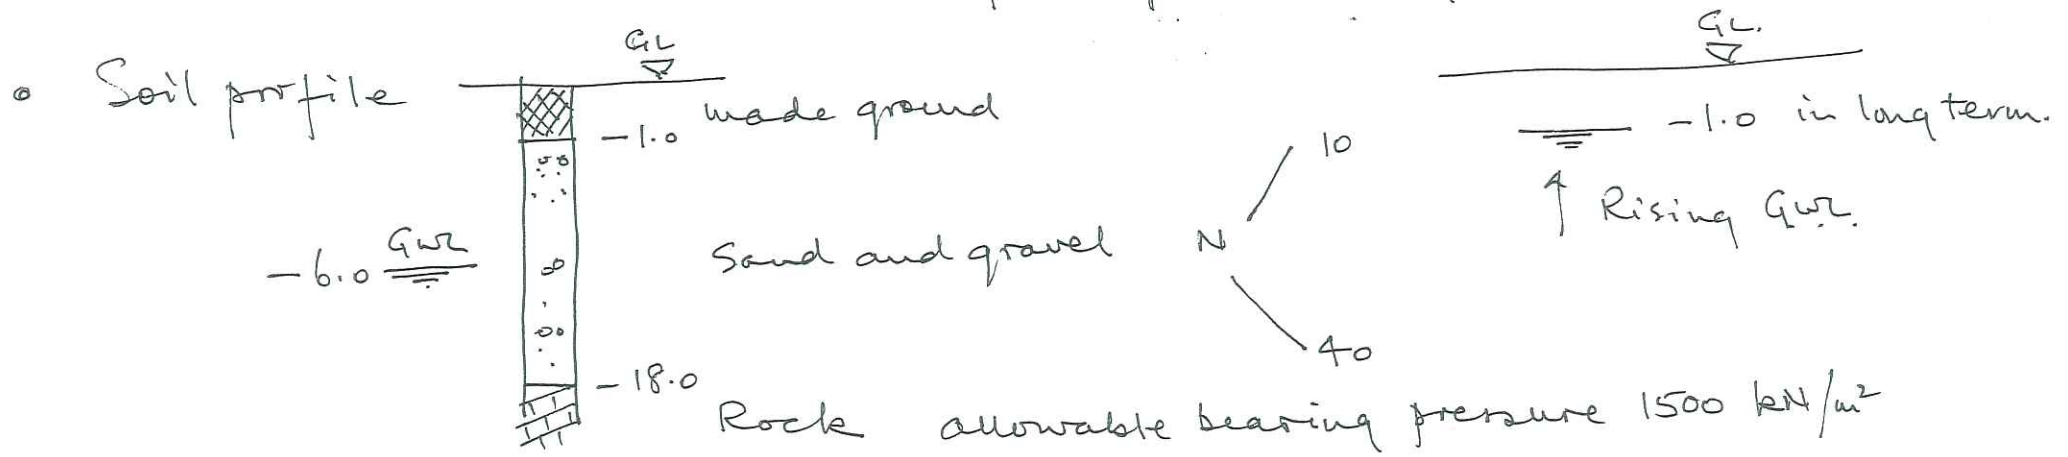 • Soil profile
GL
made ground
-1.0
GWL
-6.0
Sand and gravel N
10
40
-18.0
Rock allowable bearing pressure 1500 kN/m²
GL.
-1.0 in long term.
↑ Rising GWL.